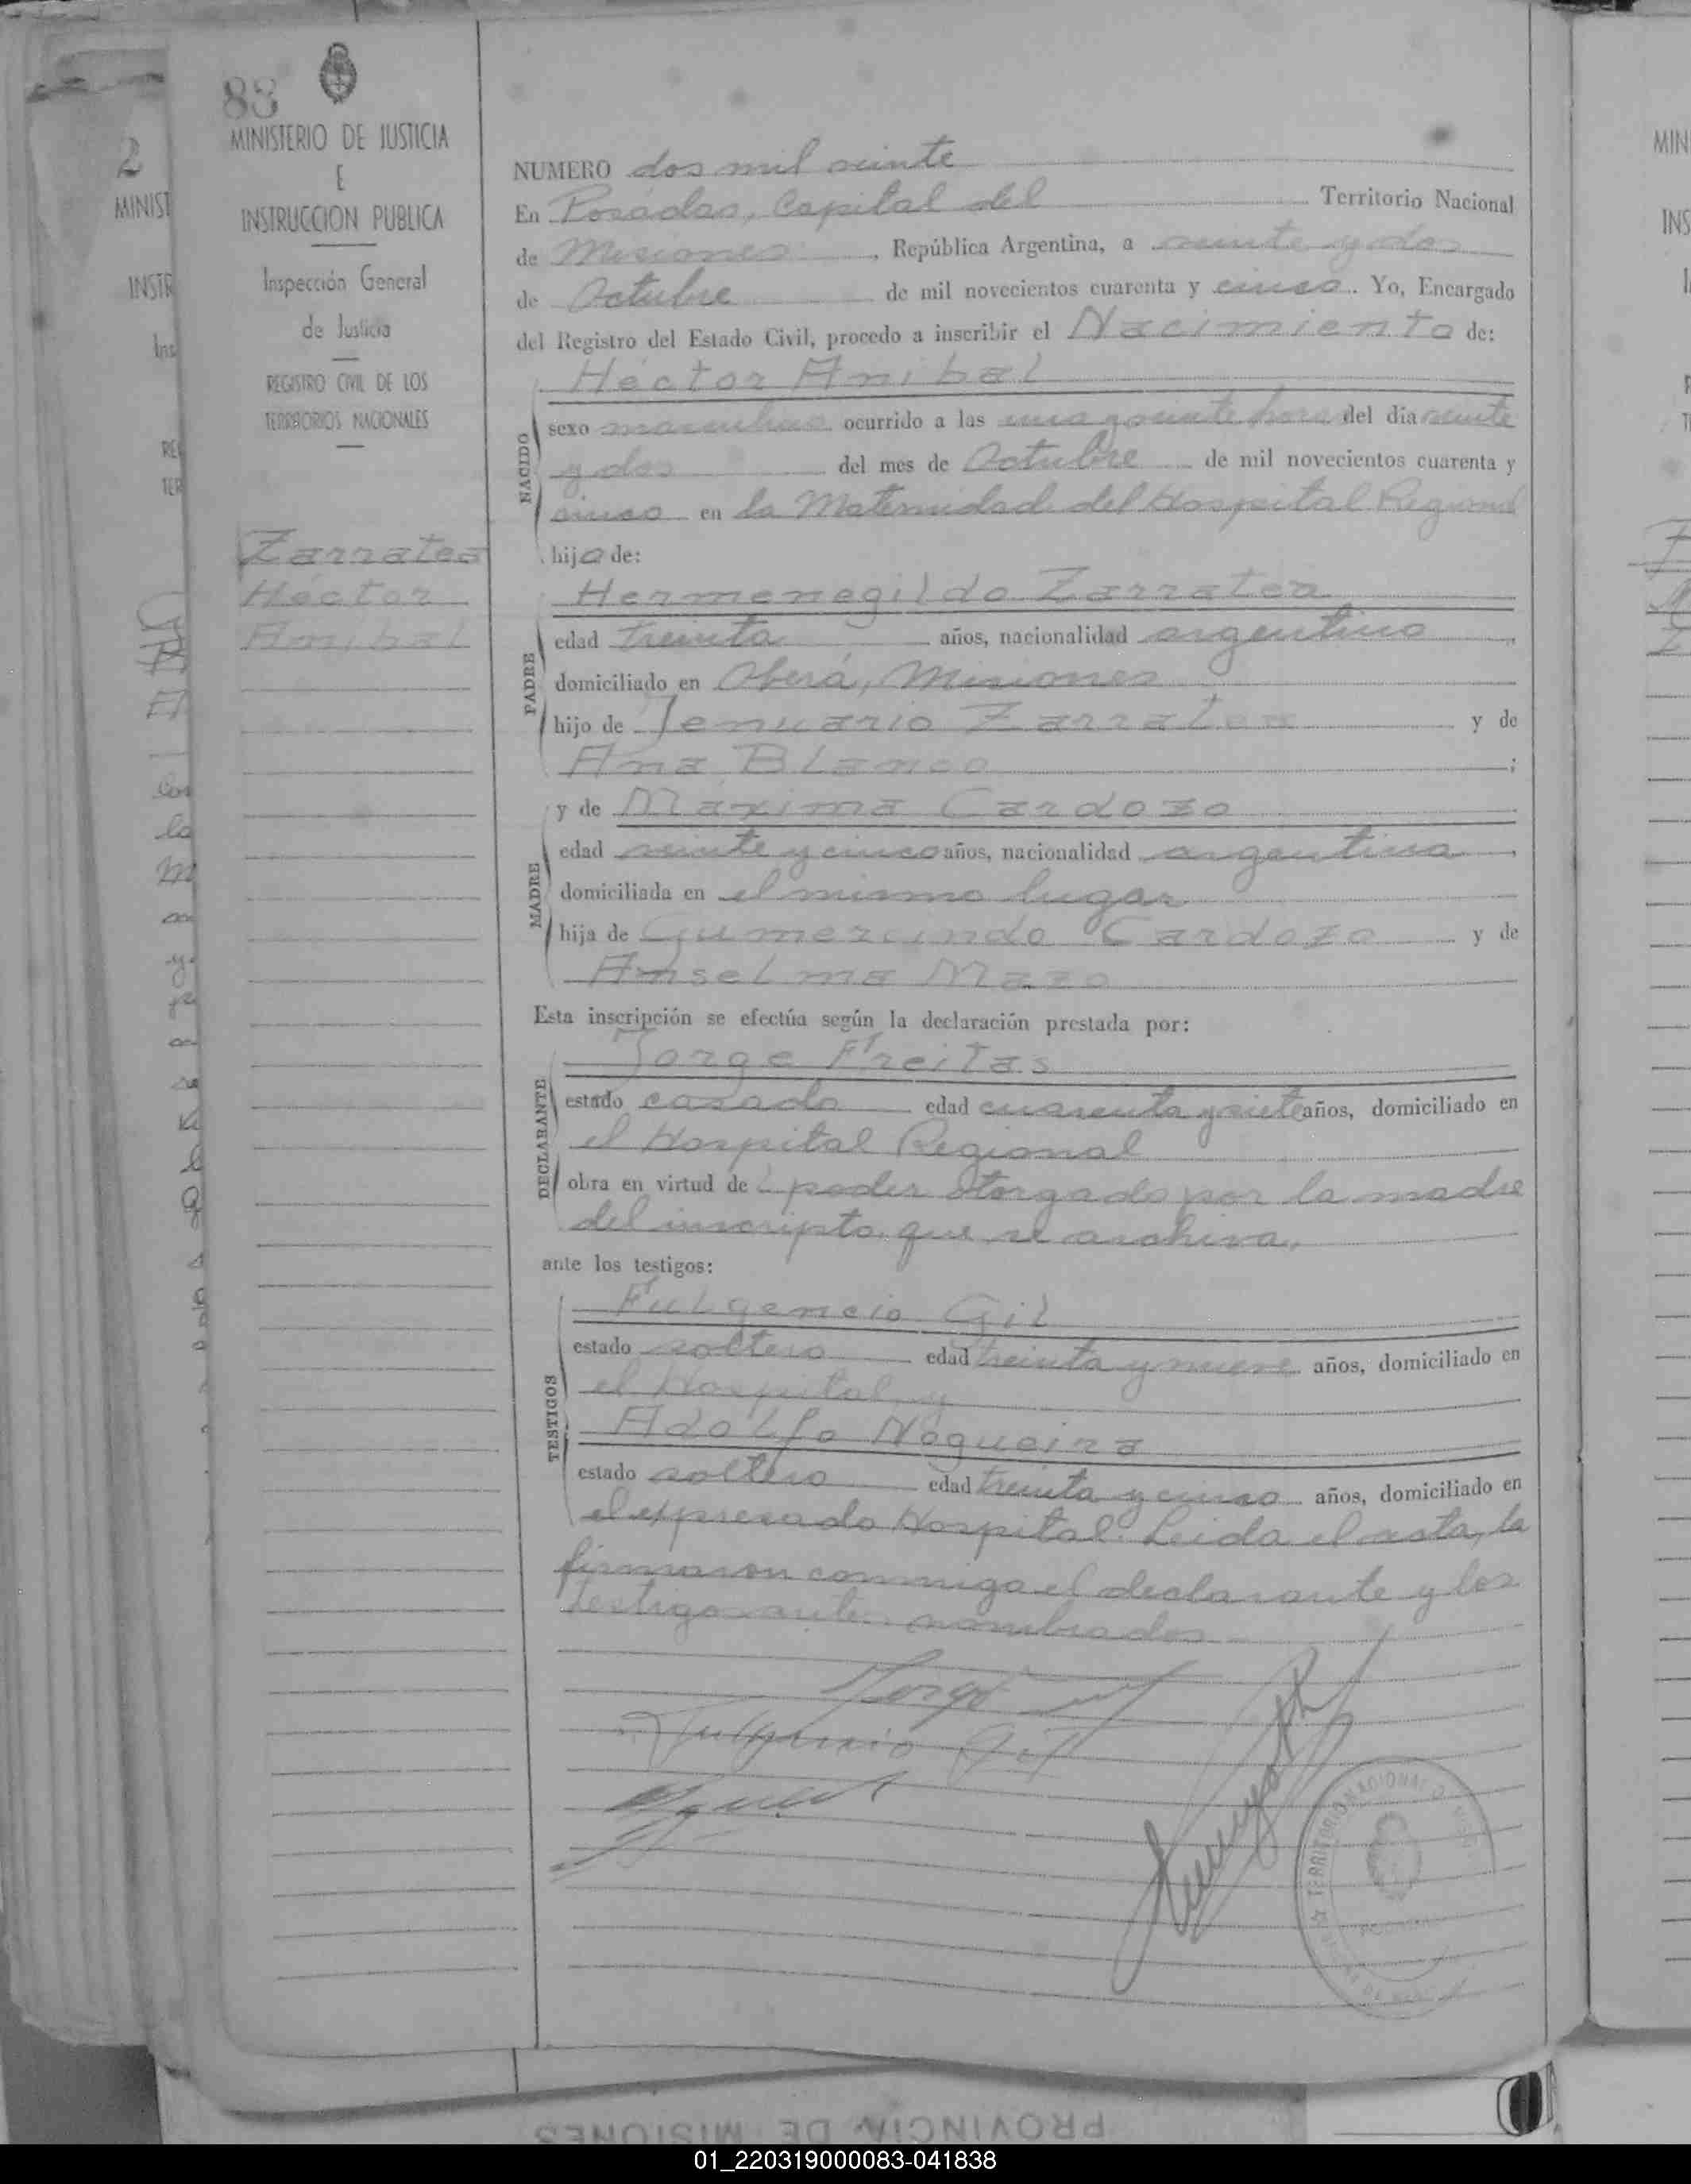 83
MINISTERIO DE JUSTICIA
E
INSTRUCCION PUBLICA
Inspección General
de Justicia
REGISTRO CIVIL DE LOS
TERRITORIOS NACIONALES
Zarratea
Héctor
Anibal
NUMERO dos mil veinte
En Posadas, Capital del Territorio Nacional
de Misiones, República Argentina, a veinte y dos
de Octubre de mil novecientos cuarenta y cinco. Yo, Encargado
del Registro del Estado Civil, procedo a inscribir el Nacimiento de:
Héctor Anibal
NACIDO
sexo masculino ocurrido a las una y veinte horas del dia veinte
y dos del mes de Octubre de mil novecientos cuarenta y
cinco en la Maternidad del Hospital Regional
hijo de:
Hermenegildo Zarratea
PADRE
edad treinta años, nacionalidad argentino,
domiciliado en Oberá, Misiones
hijo de Jenuario Zarratea y de
Ana Blanco;
y de Máxima Cardozo
MADRE
edad veinte y cinco años, nacionalidad argentina,
domiciliada en el mismo lugar
hija de Gumercindo Cardozo y de
Anselma Mazo
Esta inscripción se efectúa según la declaración prestada por:
Jorge Freitas
DECLARANTE
estado casado edad cuarenta y siete años, domiciliado en
el Hospital Regional
obra en virtud de poder otorgado por la madre
del inscripto que se archiva.
ante los testigos:
Fulgencio Gil
TESTIGOS
estado soltero edad treinta y nueve años, domiciliado en
el Hospital y
Adolfo Nogueira
estado soltero edad treinta y cinco años, domiciliado en
el expresado Hospital. Leida el acta, la
firmaron conmigo el declarante y los
testigos antes nombrados
Jorge
Fulgencio Gil
TERRITORIO NACIONAL
PROVINCIA DE MISIONES
01_220319000083-041838